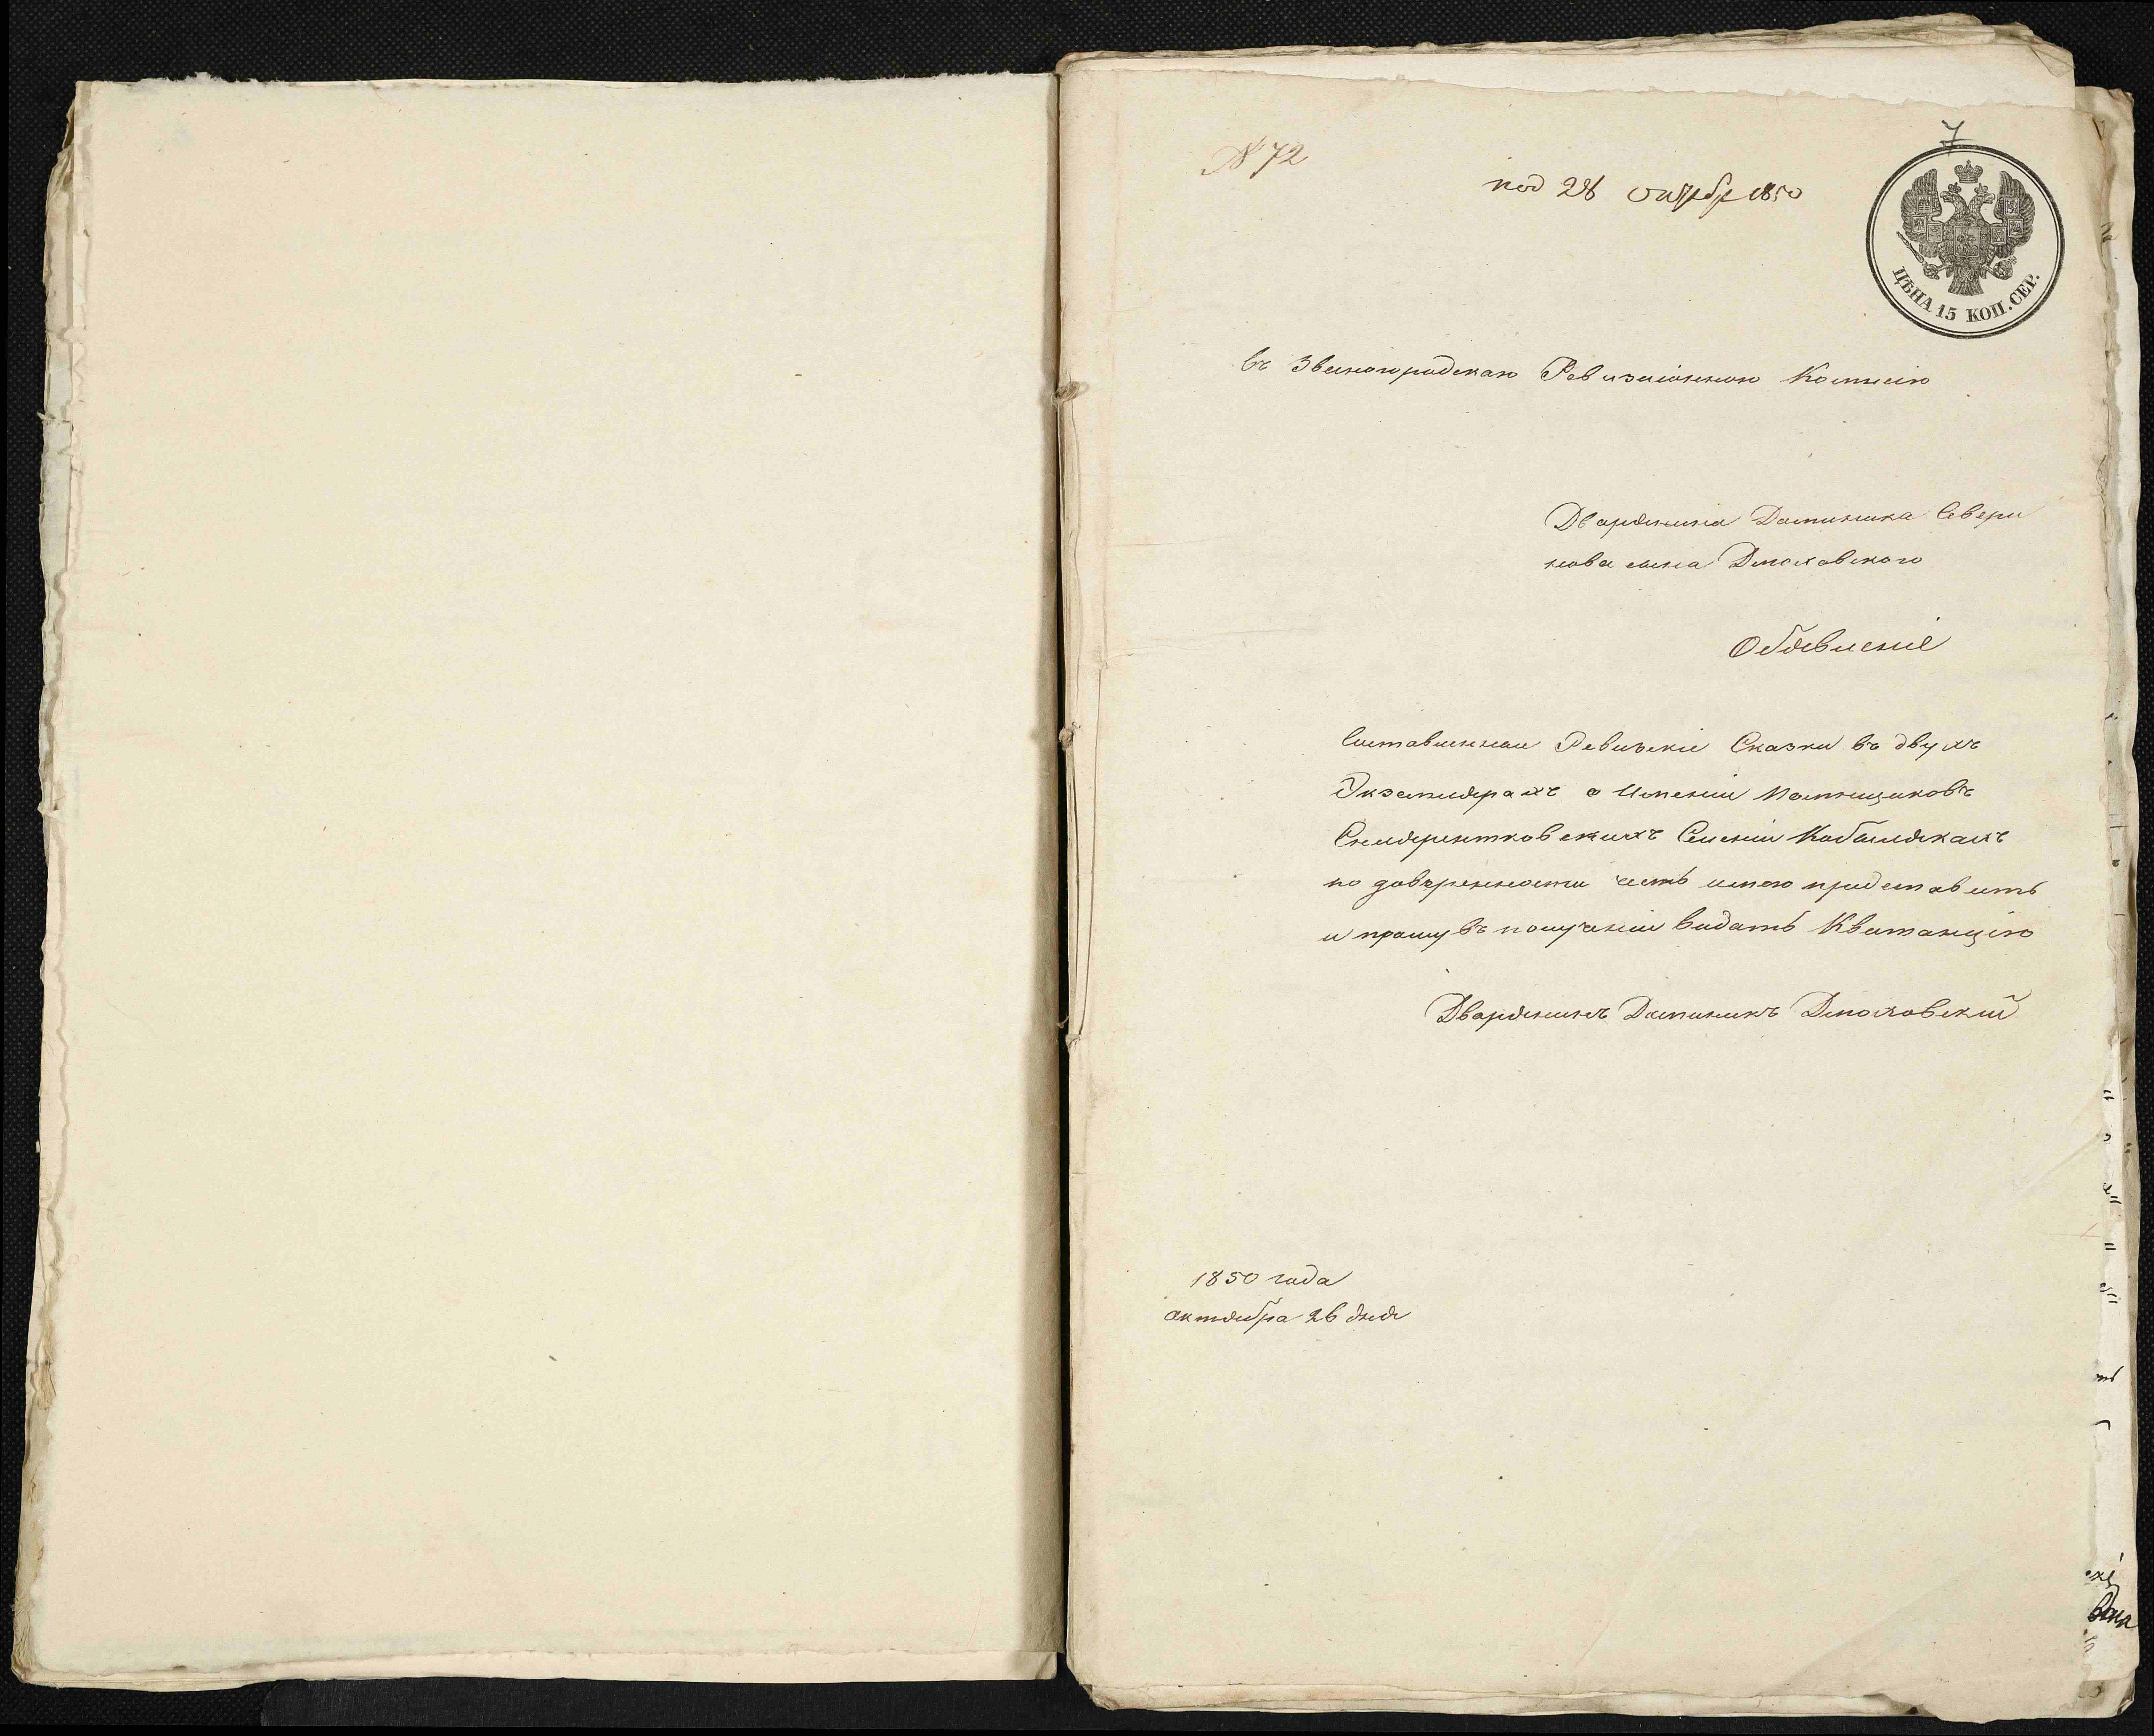 7
№ 72
под 26 октября 1850
ЦѢНА 15 КОП. СЕР.
въ Звеногородскаю Ревизіонною Комисію
Дворянина Доминика Севери
нова сына Дмоховского
Обявленіе
Составленная Ревизскіе Сказки въ двухъ
Экземплярахъ о Имении Помещиковъ
по доверенности честь имею представить
и прошу въ получении видать Квитанцію
Дворянинъ Доминикъ Дмоховский
1850 года
октября 26 дня